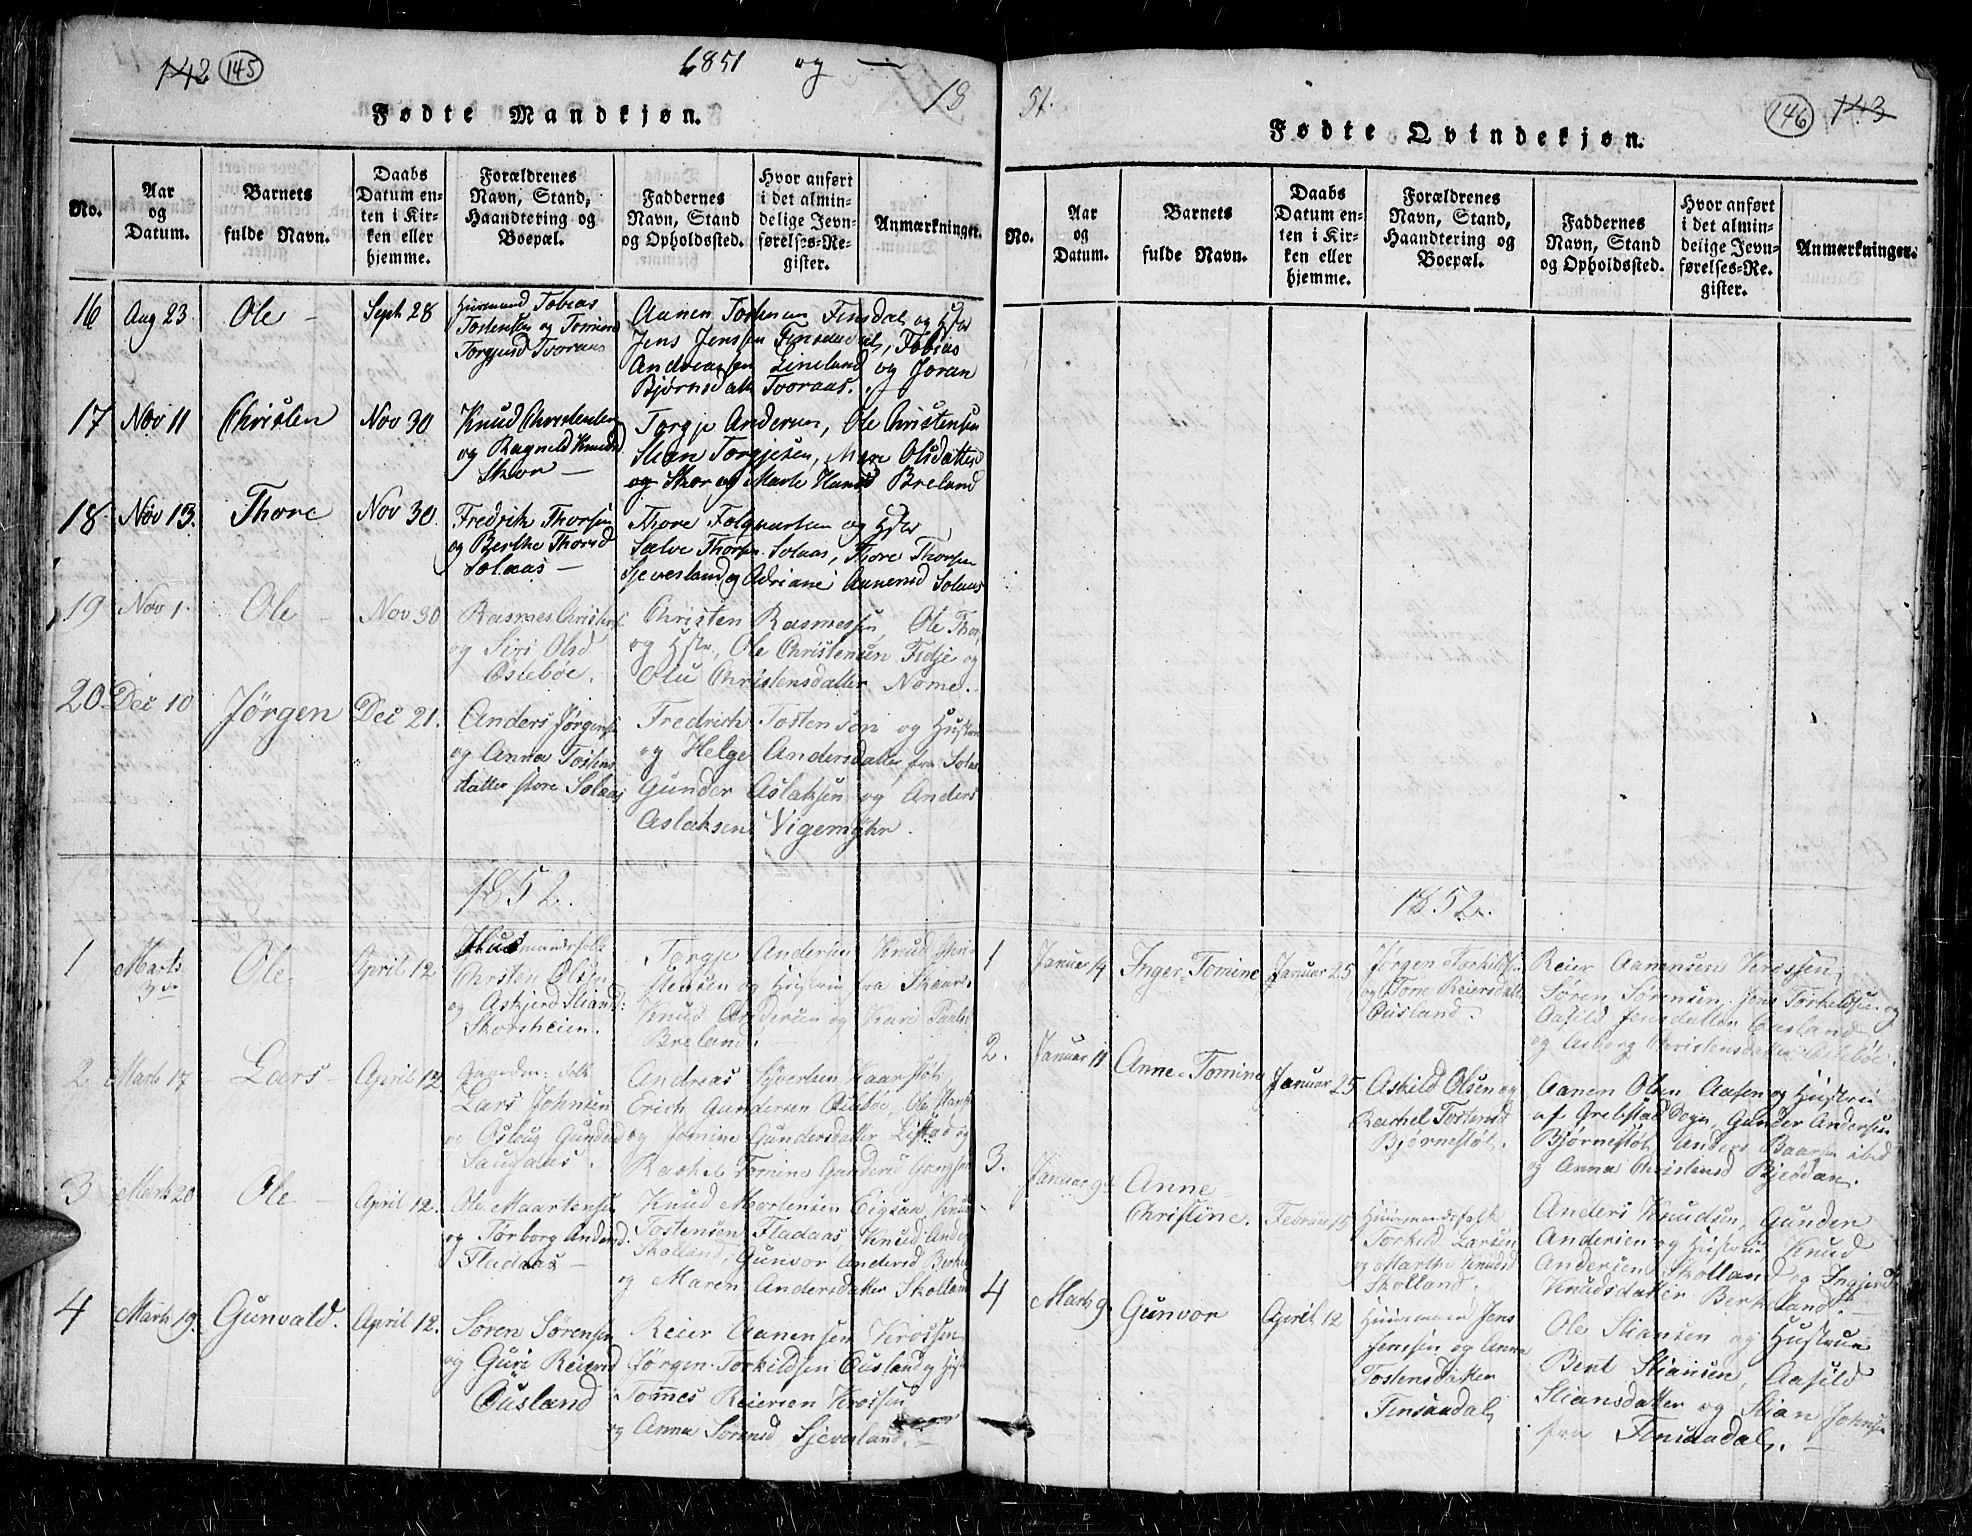 142 145
1851 og —
18
Fødte Mandkjøn.
No.
Aar
og
Datum.
Barnets
fulde Navn.
Daabs
Datum en-
ten i Kir-
ken eller
hjemme.
Forældrenes
Navn, Stand,
Haandtering og
Boepæl.
Faddernes
Navn, Stand
og Opholdssted.
Hvor anført
i det almin-
delige Jevn-
førelses-Re-
gister.
Anmærkninger.
16 Aug 23 Ole — Sept 28
Huusmand Tobias
Tostensen og Tomine
Torgjusd Tvoraas
Aanen Finsdal og Hstr
Jens Jenssen Finsaadal, Tobias
Andreassen Lineland og Joran
Bjørnsdatt Tvoraas.
17 Nov 11 Christen Nov 30
Knud Christensen
og Ragnild Knudsd
Skaar —
Torgje Andersen, Ole Christensen
Stian Torgjesen, Mare Olsdatter
og Skar og Marte Hansd Breland
18. Nov 13. Thore Nov 30.
Fredrik Thorsen
og Berthe Thorsd
Solaas —
Thore Folqvartsen og Hstr
Salve Thorsen Solaas, Thore Thorsen
Sjevesland og Adriane Aanensd Solaas
19 Nov 1. Ole Nov 30
Rasmes Christens
og Siri Olsd
Oslebøe.
Christen Rasmessen, Ole Thor
og Hstr, Ole Christensen Fidje og
Olu Christensdatter Nome.
20. Dec 10 Jörgen Dec 21.
Anders Jörgens
og Anna Tostens
datter store Solaas
Fredrich Tostensen og Hustru
og Helge Andersdatter fra Solaas
Gunder Aslaksen og Anders
Aslaksen Vigemyhr.
1852.
1 Marts
3die
Ole April 12
Huusmandsfolk
Chrsten Olsen
og Askjerd Stiand:
Skorsheien.
Torgje Andersen Knud Chri-
stensen og Hustru fra Skaar.
Knud Andersen og Kari Pauls
Breland.
2 Marts 17 Lars April 12
Gaardm: folk
Lars Johnsen
og Osloug Gundersd
Laugaas.
Andreas Syvertsen Haarstøl,
Erich Gundersen Oslebøe, Ole
og Jomine Gundersdatter Listad og
Rachel Tomine Gundersd
3 Marts 20 Ole — April 12.
Ole Maartensen
og Torborg Andersd.
Fladaas —
Knud Mortensen Eigsaa, Knud
Tostensen Fladaas, Knud Anders
Skolland, Gunvor Andersd Berke
og Maren Andersdatter Skolland
4 Marts 19. Gunvald. April 12.
Soren Sörensen
og Guri Reiersd
Ousland
Reier Aanensen Krossen
Jørgen Torkildsen Ousland og Hust
Tomes Reiersen Krossen
og Anna Sørensd Sjevesland.
51.
146 143
Fødte Qvindekjøn.
No.
Aar
og
Datum.
Barnets
fulde Navn.
Daabs
Datum en-
ten i Kir-
ken eller
hjemme.
Forældrenes
Navn, Stand,
Haandtering og
Boepæl.
Faddernes
Navn, Stand
og Opholdssted.
Hvor anført
i det almin-
delige Jevn-
førelses-Re-
gister.
Anmærkninger.
1852.
1 Januar 4 Inger Tomine Januar 25
Jørgen Torkildsen
og Tone Reiersdatt
Ousland.
Reier Aanensen Krossen,
Søren Sørensen, Jens Torkeldsen og
Aasild Jensdatter Ousland
og Asborg Christensdatter Oslebøe.
2. Januar 11 Anne Tomine Januar 25
Askild Olsen og
Rachel Tostensd
Bjørnestøl.
Aanen Olsen Aasen og Hustrue
af Grebstad Sogn, Gunder Andersen
Bjørnestøl, Anders Baarsen ibid
og Anna Christensd Bjerødan.
3. Januar 9de Anne
Christine. Februar 15
Huusmandsfolk
Torkild Larsen
og Marthe Knudsd
Skolland.
Anders Knudsen, Gunder
Andersen og Hustrue Knud
Andersen Skolland og Ingjerd
Knudsdatter Berkeland.
4 Marts 9. Gunvor April 12
Huusmand Jens
Jenssen og Anna
Tostensdatter
Finsaadal
Ole Stiansen og Hustrue
Bent Stiansen, Aasild
Stiansdatter og Stian Johnsen
fra Finsaadal. —